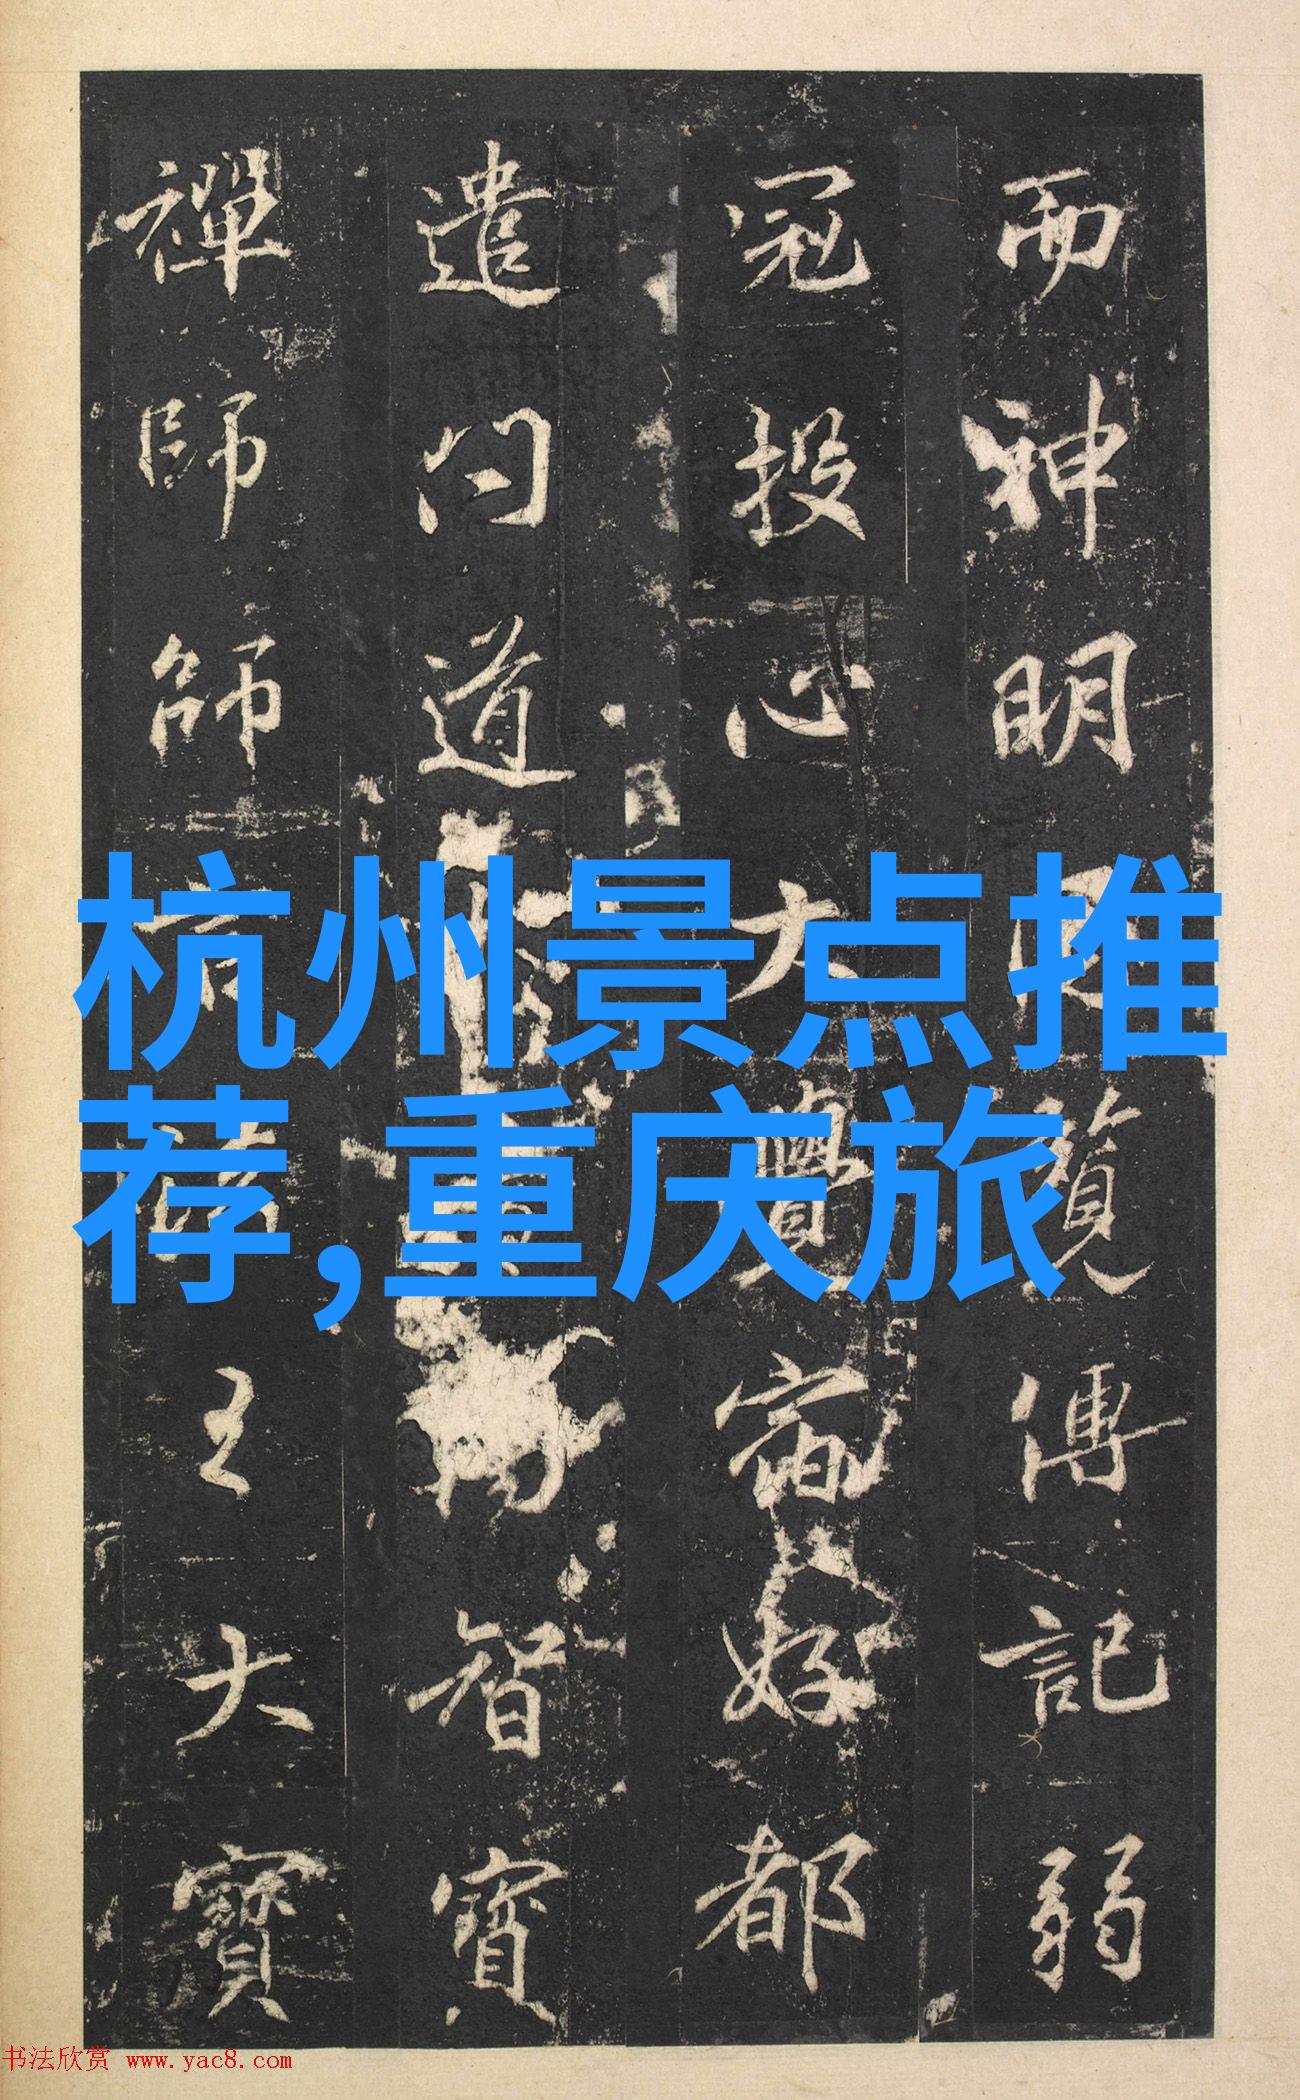 而神明覽傳記弱
冠投心大覺好都
遣問道智寶
禪師師王大寶
杭州景点推
荐,重庆旅
书法欣赏 www.yac8.com